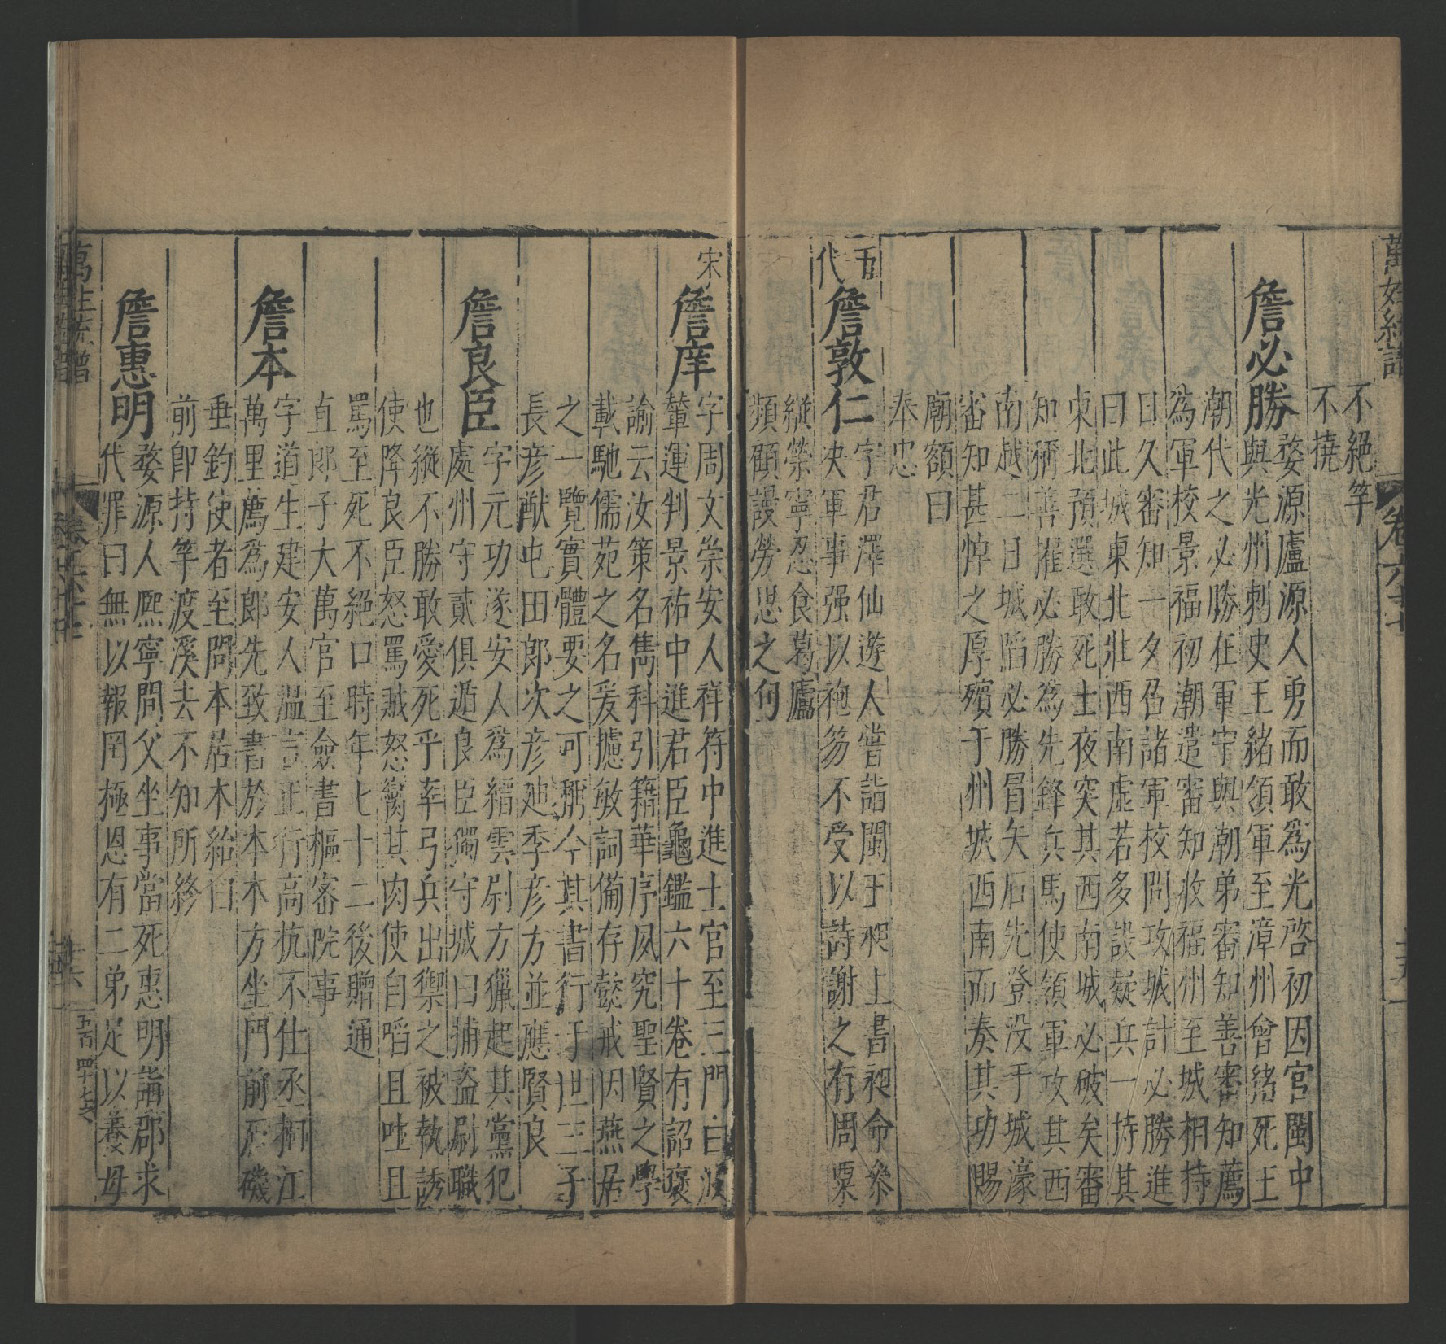 萬姓統譜
卷六十七
不絕竿
不撓
詹必勝
婺源廬源人勇而敢爲光啓初因官閩中
與光州刺史王緒領軍至漳州會緒死王
潮代之必勝在軍中與潮弟審知善審知薦
爲軍校景福初潮遣審知攻福州至城相持
日久審知一夕召諸軍校問攻城計必勝進
曰此城東北壯西南虛若多設疑兵一持其
東北預選敢死士夜突其西南城必破矣審
知稱善擢必勝爲先鋒兵馬使領軍攻其西
南越二日城陷必勝冒矢石先登没于城濠
審知甚悼之厚殯于州城西南而奏其功賜
廟額曰
奉忠
五代
詹敦仁
字君澤仙遊人嘗詣閩王昶上書昶命參
決軍事强以袍笏不受以詩謝之有周粟
縱榮寧忍食葛廬
頻顧謾勞思之句
宋
詹庠
字周文崇安人祥符中進士官至三門白波
輦運判景祐中進君臣龜鑑六十卷有詔褒
諭云汝策名雋科引籍華序夙究聖賢之學
載馳儒苑之名爰攄敏詞備存懿戒因燕居
之一覽實體要之可稱今其書行于世三子
長彦猷屯田郎次彦迪季彦方並應賢良
詹良臣
字元功遂安人爲縉雲尉方獵起其黨犯
處州守貳俱遁良臣獨守城曰捕盜尉職
也縱不勝敢愛死乎率弓兵出禦之被執誘
使降良臣怒罵賊怒臠其肉使自啗且吐且
罵至死不絕口時年七十二後贈通
直郎子大萬官至僉書樞密院事
詹本
字道生建安人温言正行高抗不仕丞相江
萬里薦爲郎先致書於本本方坐門前石磯
垂釣使者至問本居本紿曰
前卽持竿渡溪去不知所終
詹惠明
婺源人熙寧間父坐事當死惠明講郡求
代罪曰無以報罔極恩有二弟足以養母
萬姓統譜
卷六十七